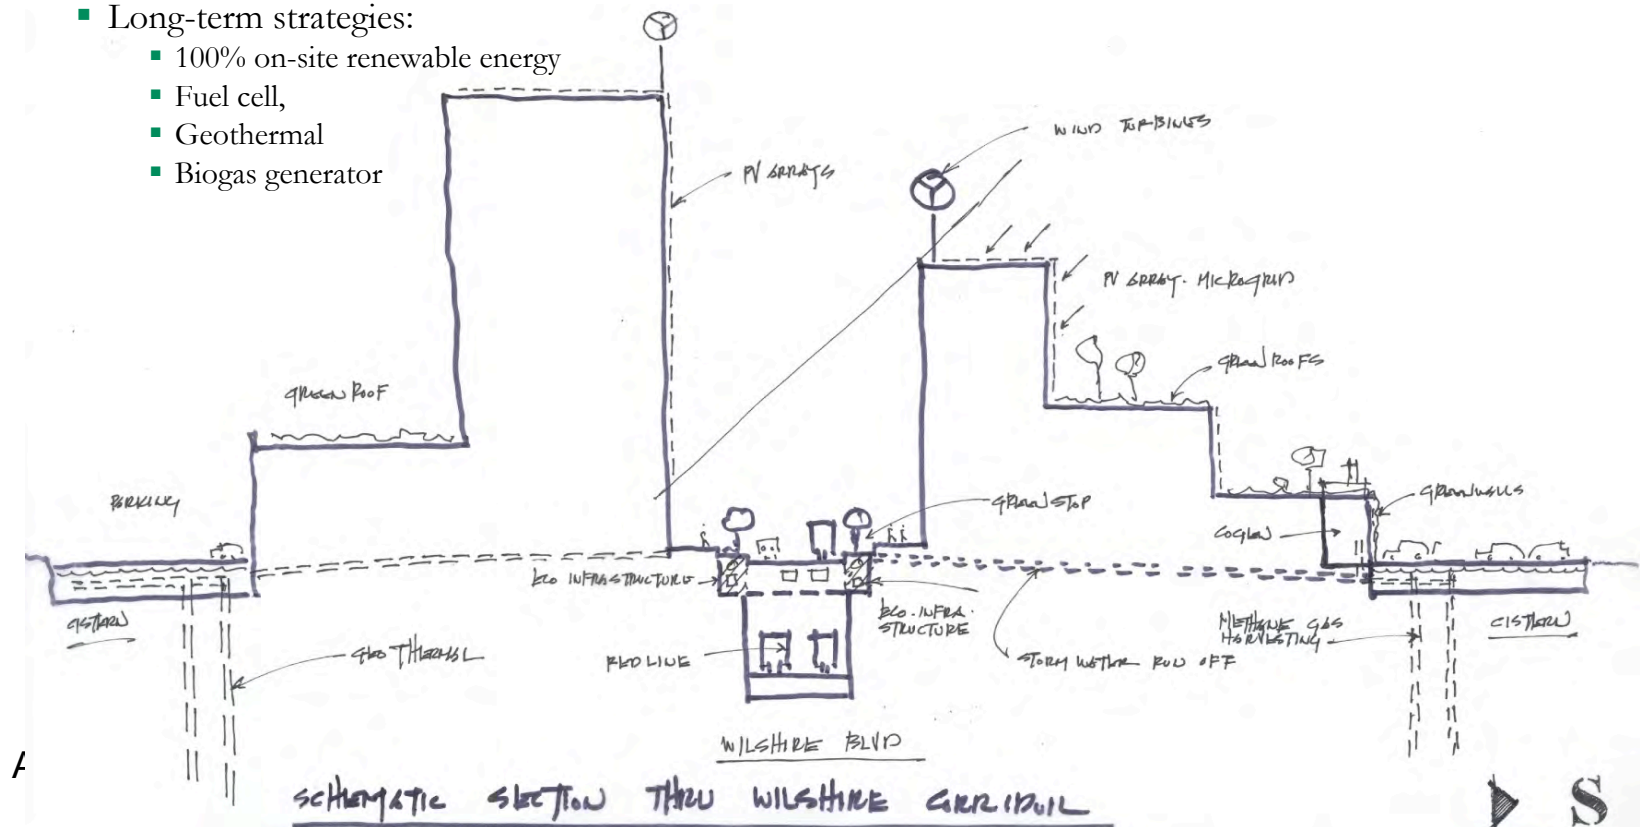 ▪ Long-term strategies:
▪ 100% on-site renewable energy
▪ Fuel cell,
▪ Geothermal
▪ Biogas generator
WIND TURBINES
PV ARRAYS
PV ARRAY. MICROGRID
GREEN ROOFS
GREEN ROOF
PARKING
GREEN STOP
GREEN WALLS
COGEN
ECO INFRASTRUCTURE
CISTERN
ECO.INFRA.
STRUCTURE
METHANE GAS
HARVESTING
CISTERN
GEO THERMAL
RED LINE
STORM WATER RUN OFF
WILSHIRE BLVD
A
SCHEMATIC SECTION THRU WILSHIRE CORRIDOR
S